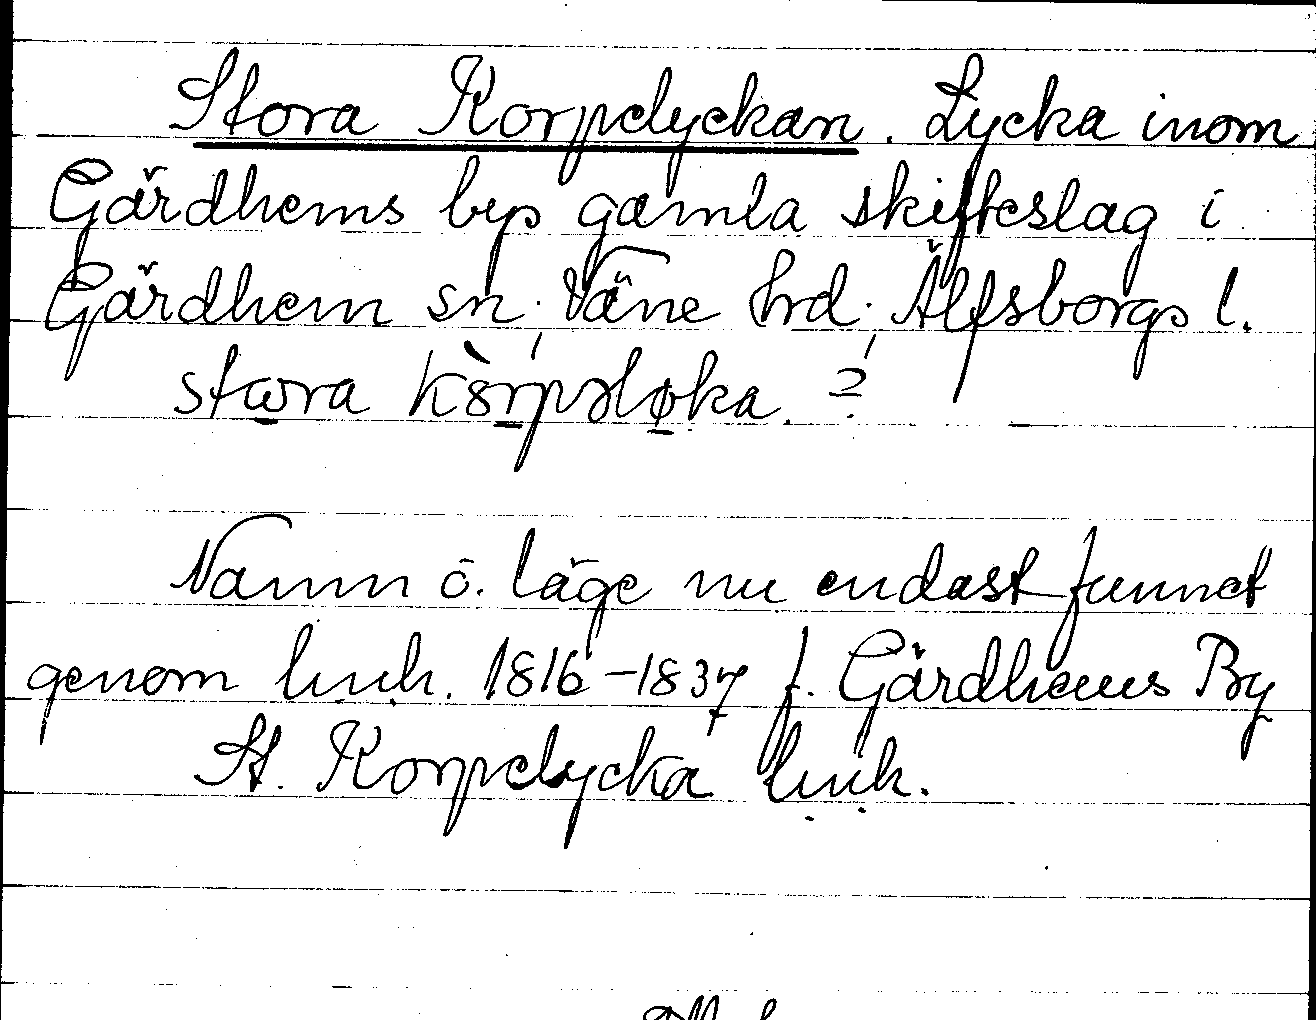 Stora Korpelyckan. Lycka inom
Gärdhems bys gamla skifteslag i
Gärdhem sn; Väne hrd; Älfsborgs l.
stora kòrpəløka. ?
Namn o. läge nu endast funnet
genom lmh. 1816-1837 f. Gärdhems By
St. Korpelycka lmh.